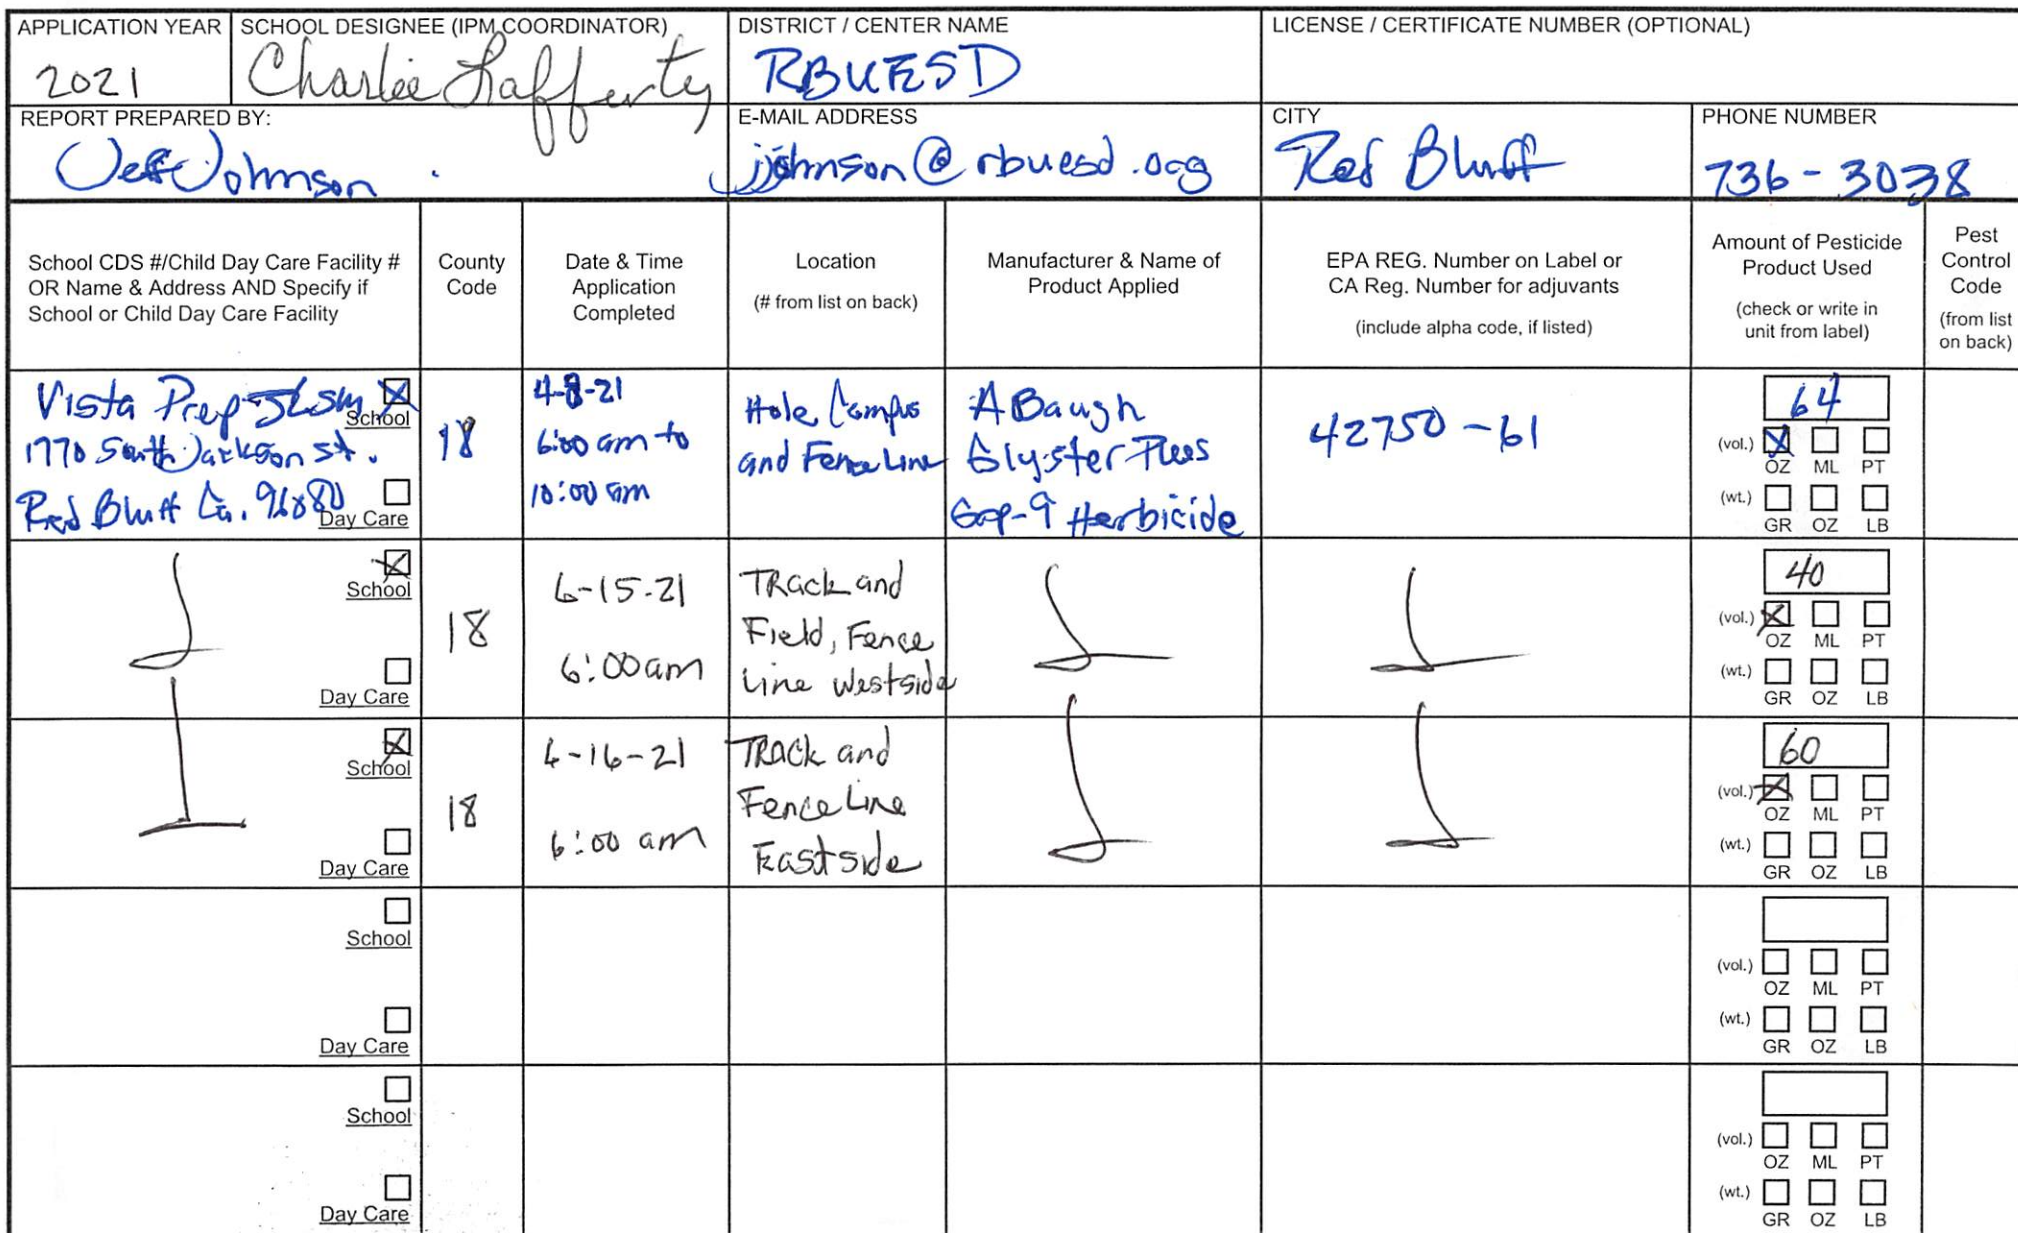 APPLICATION YEAR
2021
SCHOOL DESIGNEE (IPM COORDINATOR)
Charlie Lafferty
DISTRICT / CENTER NAME
RBUESD
LICENSE / CERTIFICATE NUMBER (OPTIONAL)
REPORT PREPARED BY:
Jeff Johnson
E-MAIL ADDRESS
jjohnson@rbuesd.org
CITY
Red Bluff
PHONE NUMBER
736-3038
School CDS #/Child Day Care Facility #
OR Name & Address AND Specify if
School or Child Day Care Facility
County
Code
Date & Time
Application
Completed
Location
(# from list on back)
Manufacturer & Name of
Product Applied
EPA REG. Number on Label or
CA Reg. Number for adjuvants
(include alpha code, if listed)
Amount of Pesticide
Product Used
(check or write in
unit from label)
Pest
Control
Code
(from list
on back)
Vista Prep
School
1770 South Jackson St.
Red Bluff Ca. 96080
Day Care
18
4-8-21
6:00 am to
10:00 am
Hole Campus
and Fence Line
ABaugh
Glyster Plus
Herbicide
42750-61
64
(vol.)
OZ ML PT
(wt.)
GR OZ LB
School
Day Care
18
6-15-21
6:00am
TRack and
Field, Fence
Line Westside
40
(vol.)
OZ ML PT
(wt.)
GR OZ LB
School
Day Care
18
6-16-21
6:00 am
TRACk and
Fence Line
Eastside
60
(vol.)
OZ ML PT
(wt.)
GR OZ LB
School
Day Care
(vol.)
OZ ML PT
(wt.)
GR OZ LB
School
Day Care
(vol.)
OZ ML PT
(wt.)
GR OZ LB